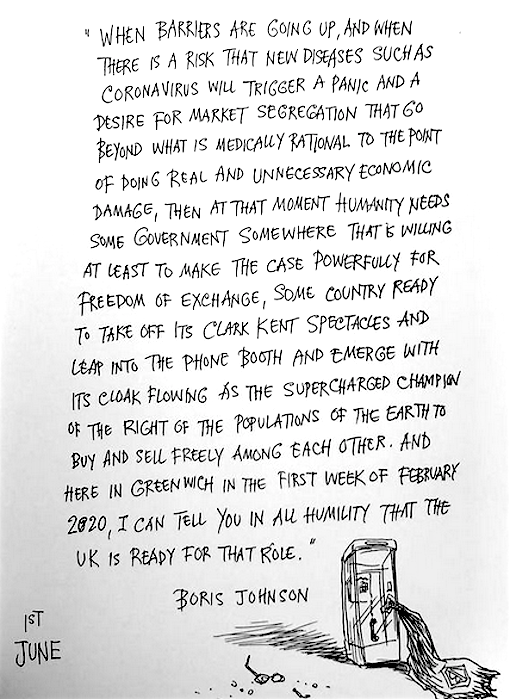 " WHEN BARRIERS ARE GOING UP, AND WHEN
THERE IS A RISK THAT NEW DISEASES SUCH AS
CORONAVIRUS WILL TRIGGER A PANIC AND A
DESIRE FOR MARKET SEGREGATION THAT GO
BEYOND WHAT IS MEDICALLY RATIONAL TO THE POINT
OF DOING REAL AND UNNECESSARY ECONOMIC
DAMAGE, THEN AT THAT MOMENT HUMANITY NEEDS
SOME GOVERNMENT SOMEWHERE THAT IS WILLING
AT LEAST TO MAKE THE CASE POWERFULLY FOR
FREEDOM OF EXCHANGE, SOME COUNTRY READY
TO TAKE OFF ITS CLARK KENT SPECTACLES AND
LEAP INTO THE PHONE BOOTH AND EMERGE WITH
ITS CLOAK FLOWING AS THE SUPERCHARGED CHAMPION
OF THE RIGHT OF THE POPULATIONS OF THE EARTH TO
BUY AND SELL FREELY AMONG EACH OTHER. AND
HERE IN GREENWICH IN THE FIRST WEEK OF FEBRUARY
2020, I CAN TELL YOU IN ALL HUMILITY THAT THE
UK IS READY FOR THAT RÔLE. "
BORIS JOHNSON
1ST
JUNE